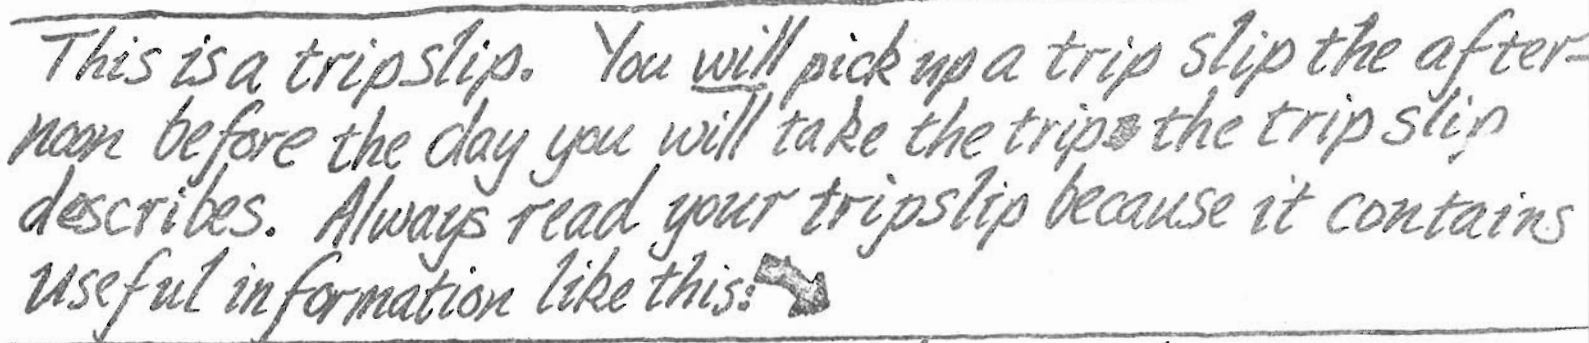 This is a trip slip. You will pick up a trip slip the after-
noon before the day you will take the trip the trip slip
describes. Always read your trip slip because it contains
useful information like this: